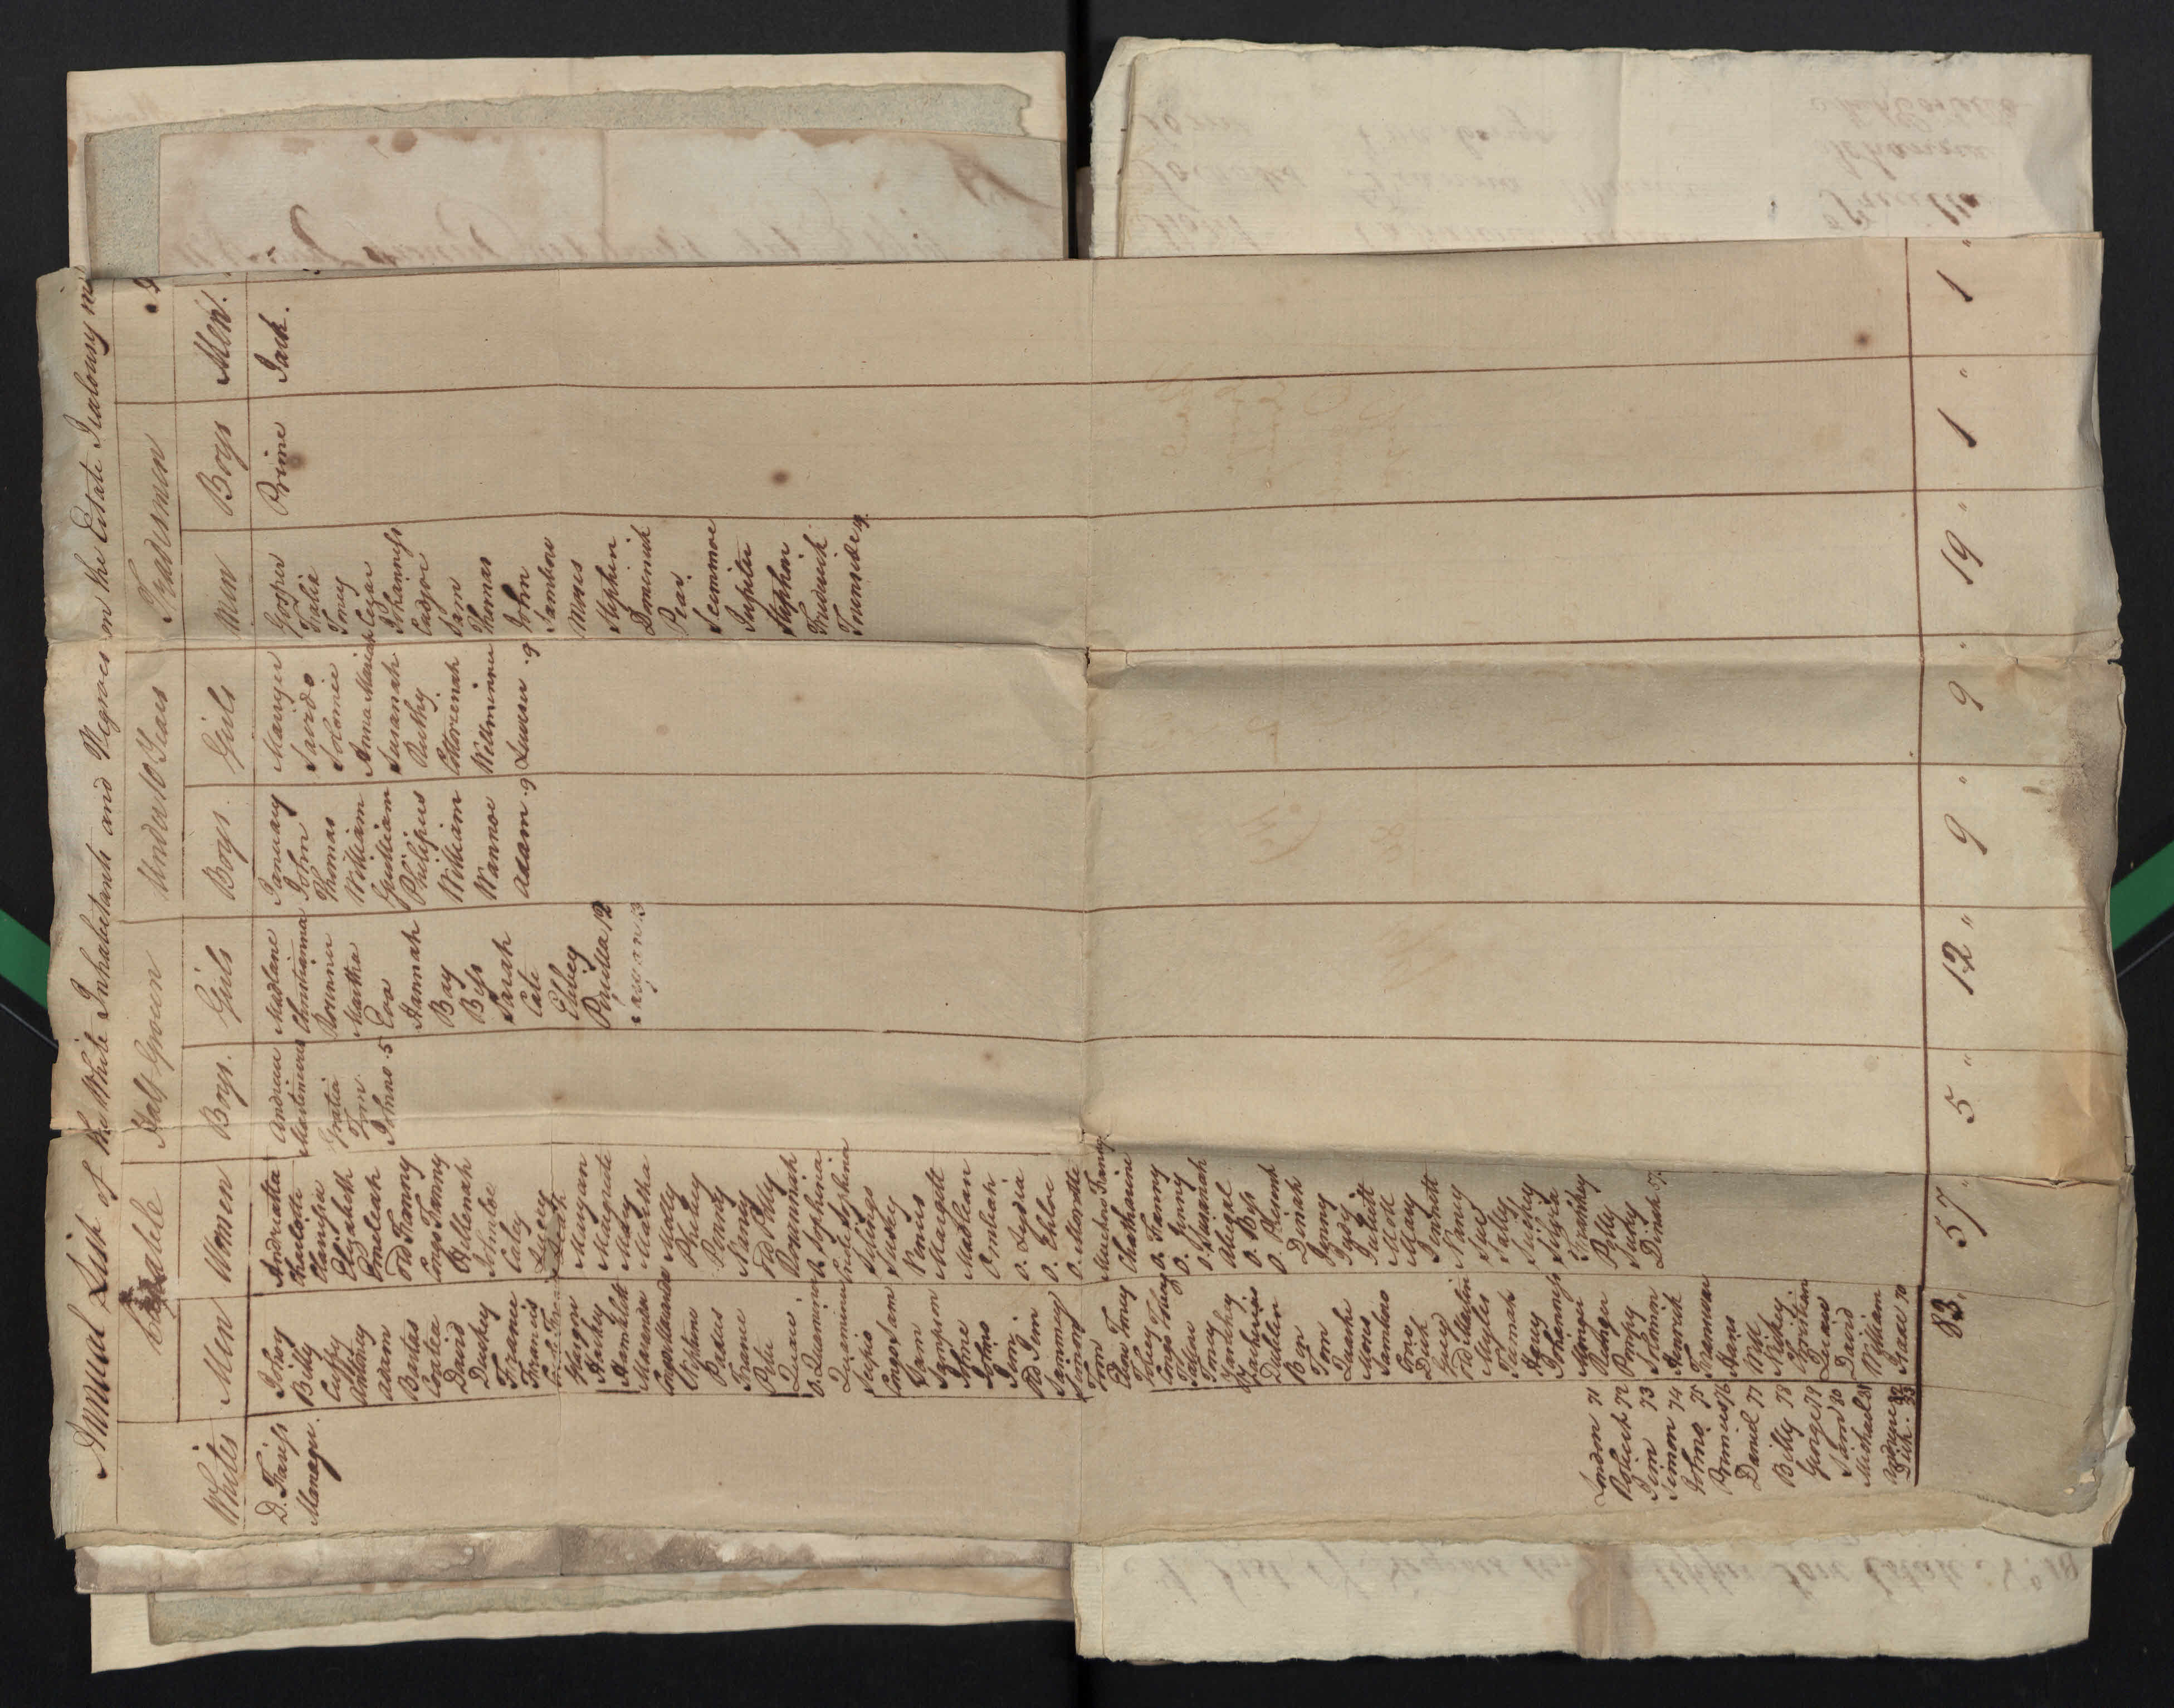 Annual List of the White Inhabetants and Negroes on the Estate Jealousy in
Capable Half Grown Under 10 Years Tradesmen
Whites Men Women Boys. Girls Boys. Girls Men Boys Men.
D. Fariss Johoy Andrietta Andrew Madlane January Marryer Gosper Prime Jack.
Manager. Billy Charlotte Martinieres Christianna John Savido Fralix
Cuffy Clarissa Gratia Rosinnia Thomas Solomie Toney
Antiney Elizabeth Tom Martha William Anna Mariah Cezar
Adam Emeleah Johnno. 5 Eva Guilliam Susanah Johanness
Bastas Old Fanny Hannah Philipus Ruthy Cudjoe
Coatea Congo Fanny Bay William Cottorienah Sam
David Hellenah Bess Wannoe Willminner Thomas
Duckey Johnloe Sarah Adam. 9 Luerser. 9 John
France Catey Cate Sambow
Francis Lucey Ebbey Moses
Creole Francis Leah Pirsilla 12 Stephen
Glasgow Maryan Maryan 13 Dominick
Hackey Margreete Pear.
Hamblett Mary Scimmoe
Maranda Martha Jupiter
Congo Maranda Molly Stephen
Neptune Phebey Frederick
Padus Penny Townside 19.
France Nancy
Peter Old Polly
Quaw. Rosannah
O. Quaminoe O. Sophina
Quamina Creole Sophina
Scipio Silingo
Congo Sam Susey
Sam Venus
Sampson Margett
Johne Madlean
Johno Ombeah
Jim. O. Lydia
Old Jim O. Chloe
Sammey O. Morotte
Simon Muchow Fanny
Tom Chatharine
Ebow Toney O. Fanny
Tobey O. Jenny
Congo Tobey O. Susanah
Tallow Abigal
Toney O. Bess
Yarckey O. Present
Zacherias Dinah
Dublin Jenny
Ben Judy.
Tom Juliett
Quashe Moll
Moses Mary
Sambow Jennett
Crow Nancy
Dick Sue
Guy Sally
Old Martin Suckey
Myles Silvia
Tumah Frankey
Harry Polly
Johanness Suckey
Minger Dinah 57.
London 71 Runger
Robert 72 Pompy
Jim 73 Solomon
Simon 74 Henrick
Johno 75 Franswar
Primus 76 Hans
Daniel 77 Will
Billy 78 Nickey
George 79 Christian
Sam 80 Quaw
Michael 81 David
Andrew 82 William
Dick. 83 Isaac 70
83. 57 " 5 " 12 " 9 " 9 " 19 " 1 " 1 "